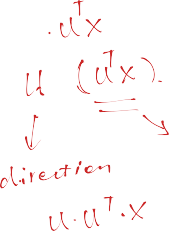 · u^T x
u (u^T x).
direction
u · u^T · x